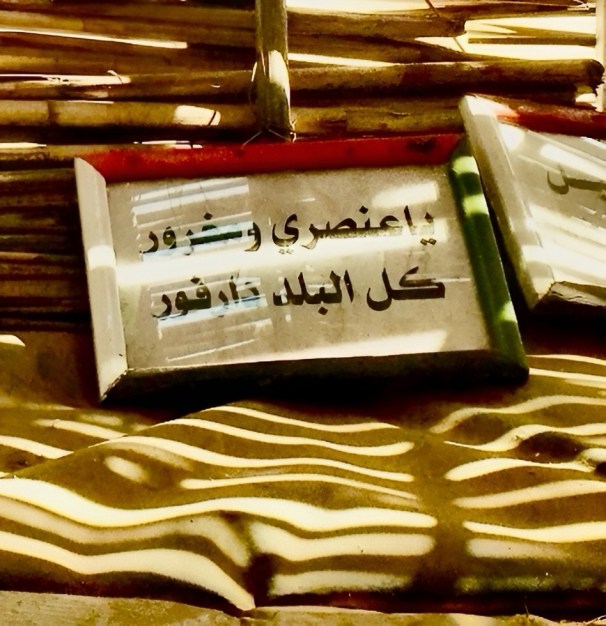 ياعنصري ومغرور
كل البلد دارفور